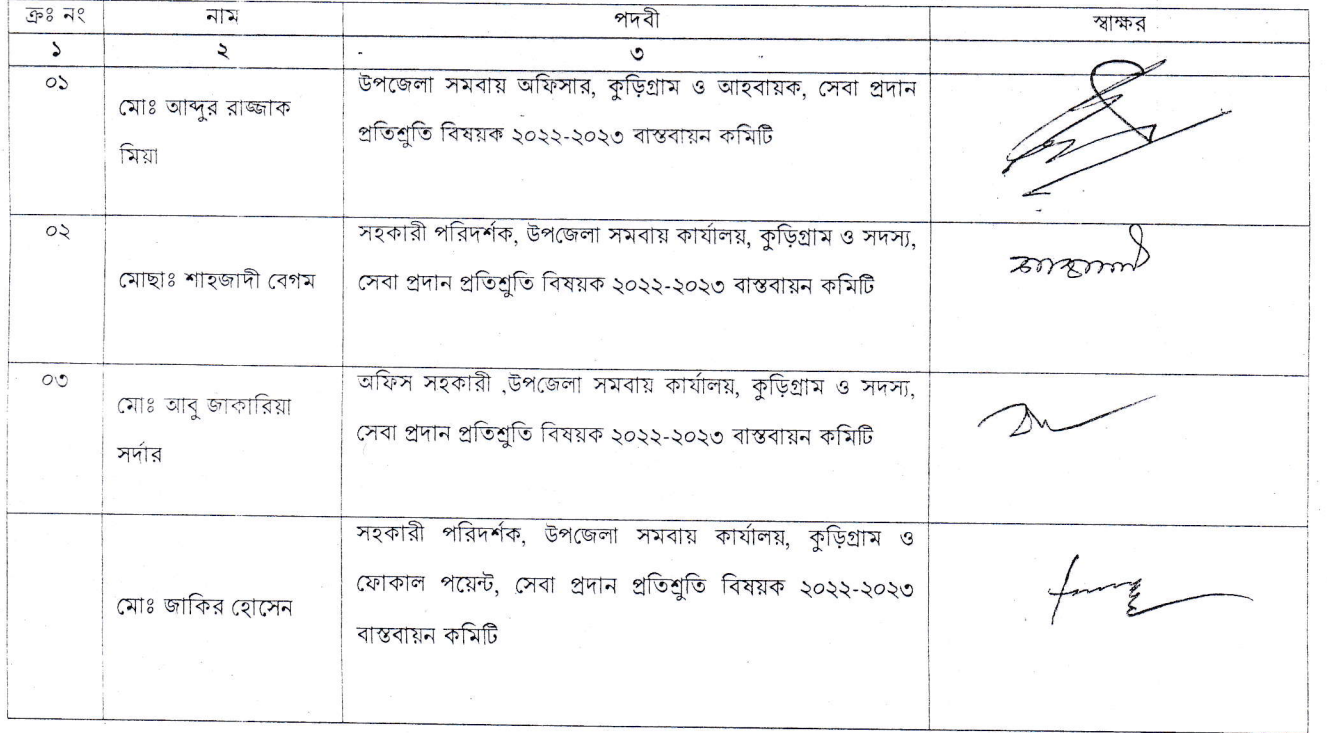 ক্রঃ নং নাম পদবী স্বাক্ষর
১ ২ ৩
০১ মোঃ আব্দুর রাজ্জাক মিয়া
উপজেলা সমবায় অফিসার, কুড়িগ্রাম ও আহবায়ক, সেবা প্রদান
প্রতিশ্রুতি বিষয়ক ২০২২-২০২৩ বাস্তবায়ন কমিটি
০২ মোছাঃ শাহজাদী বেগম
সহকারী পরিদর্শক, উপজেলা সমবায় কার্যালয়, কুড়িগ্রাম ও সদস্য,
সেবা প্রদান প্রতিশ্রুতি বিষয়ক ২০২২-২০২৩ বাস্তবায়ন কমিটি
০৩ মোঃ আবু জাকারিয়া সর্দার
অফিস সহকারী ,উপজেলা সমবায় কার্যালয়, কুড়িগ্রাম ও সদস্য,
সেবা প্রদান প্রতিশ্রুতি বিষয়ক ২০২২-২০২৩ বাস্তবায়ন কমিটি
মোঃ জাকির হোসেন
সহকারী পরিদর্শক, উপজেলা সমবায় কার্যালয়, কুড়িগ্রাম ও
ফোকাল পয়েন্ট, সেবা প্রদান প্রতিশ্রুতি বিষয়ক ২০২২-২০২৩
বাস্তবায়ন কমিটি